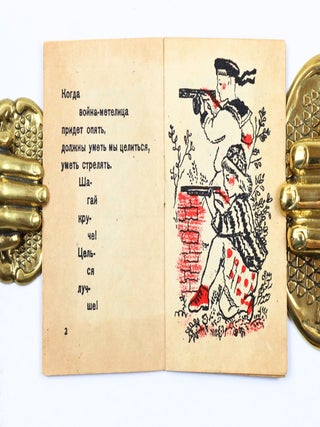 Когда
война-метелица
придет опять,
должны уметь мы целиться,
уметь стрелять.
Ша-
гай
кру-
че!
Цель-
ся
луч-
ше!
2